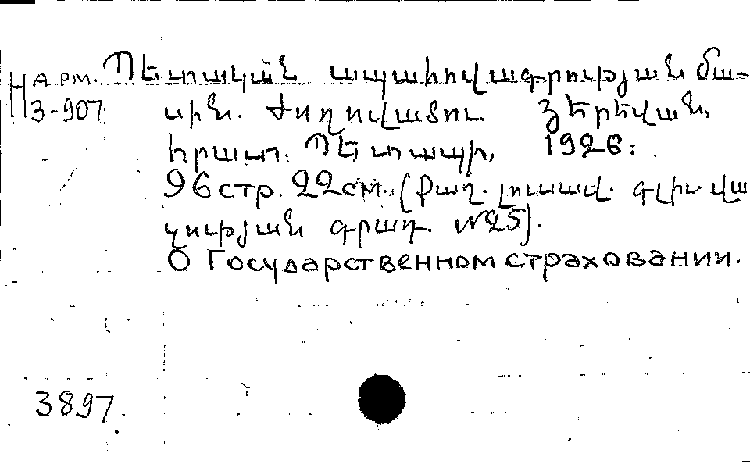 Н Арм. Պետական ապահովագրության մա-
3-907 սին. Ժողովածու Յերեվան,
հրատ. Պետապի, 1926:
96 стр. 22 см. (Քաղ. լուսավ. գլխ. վա
չության գրադ. №25).
О Государственном страховании.
3897.